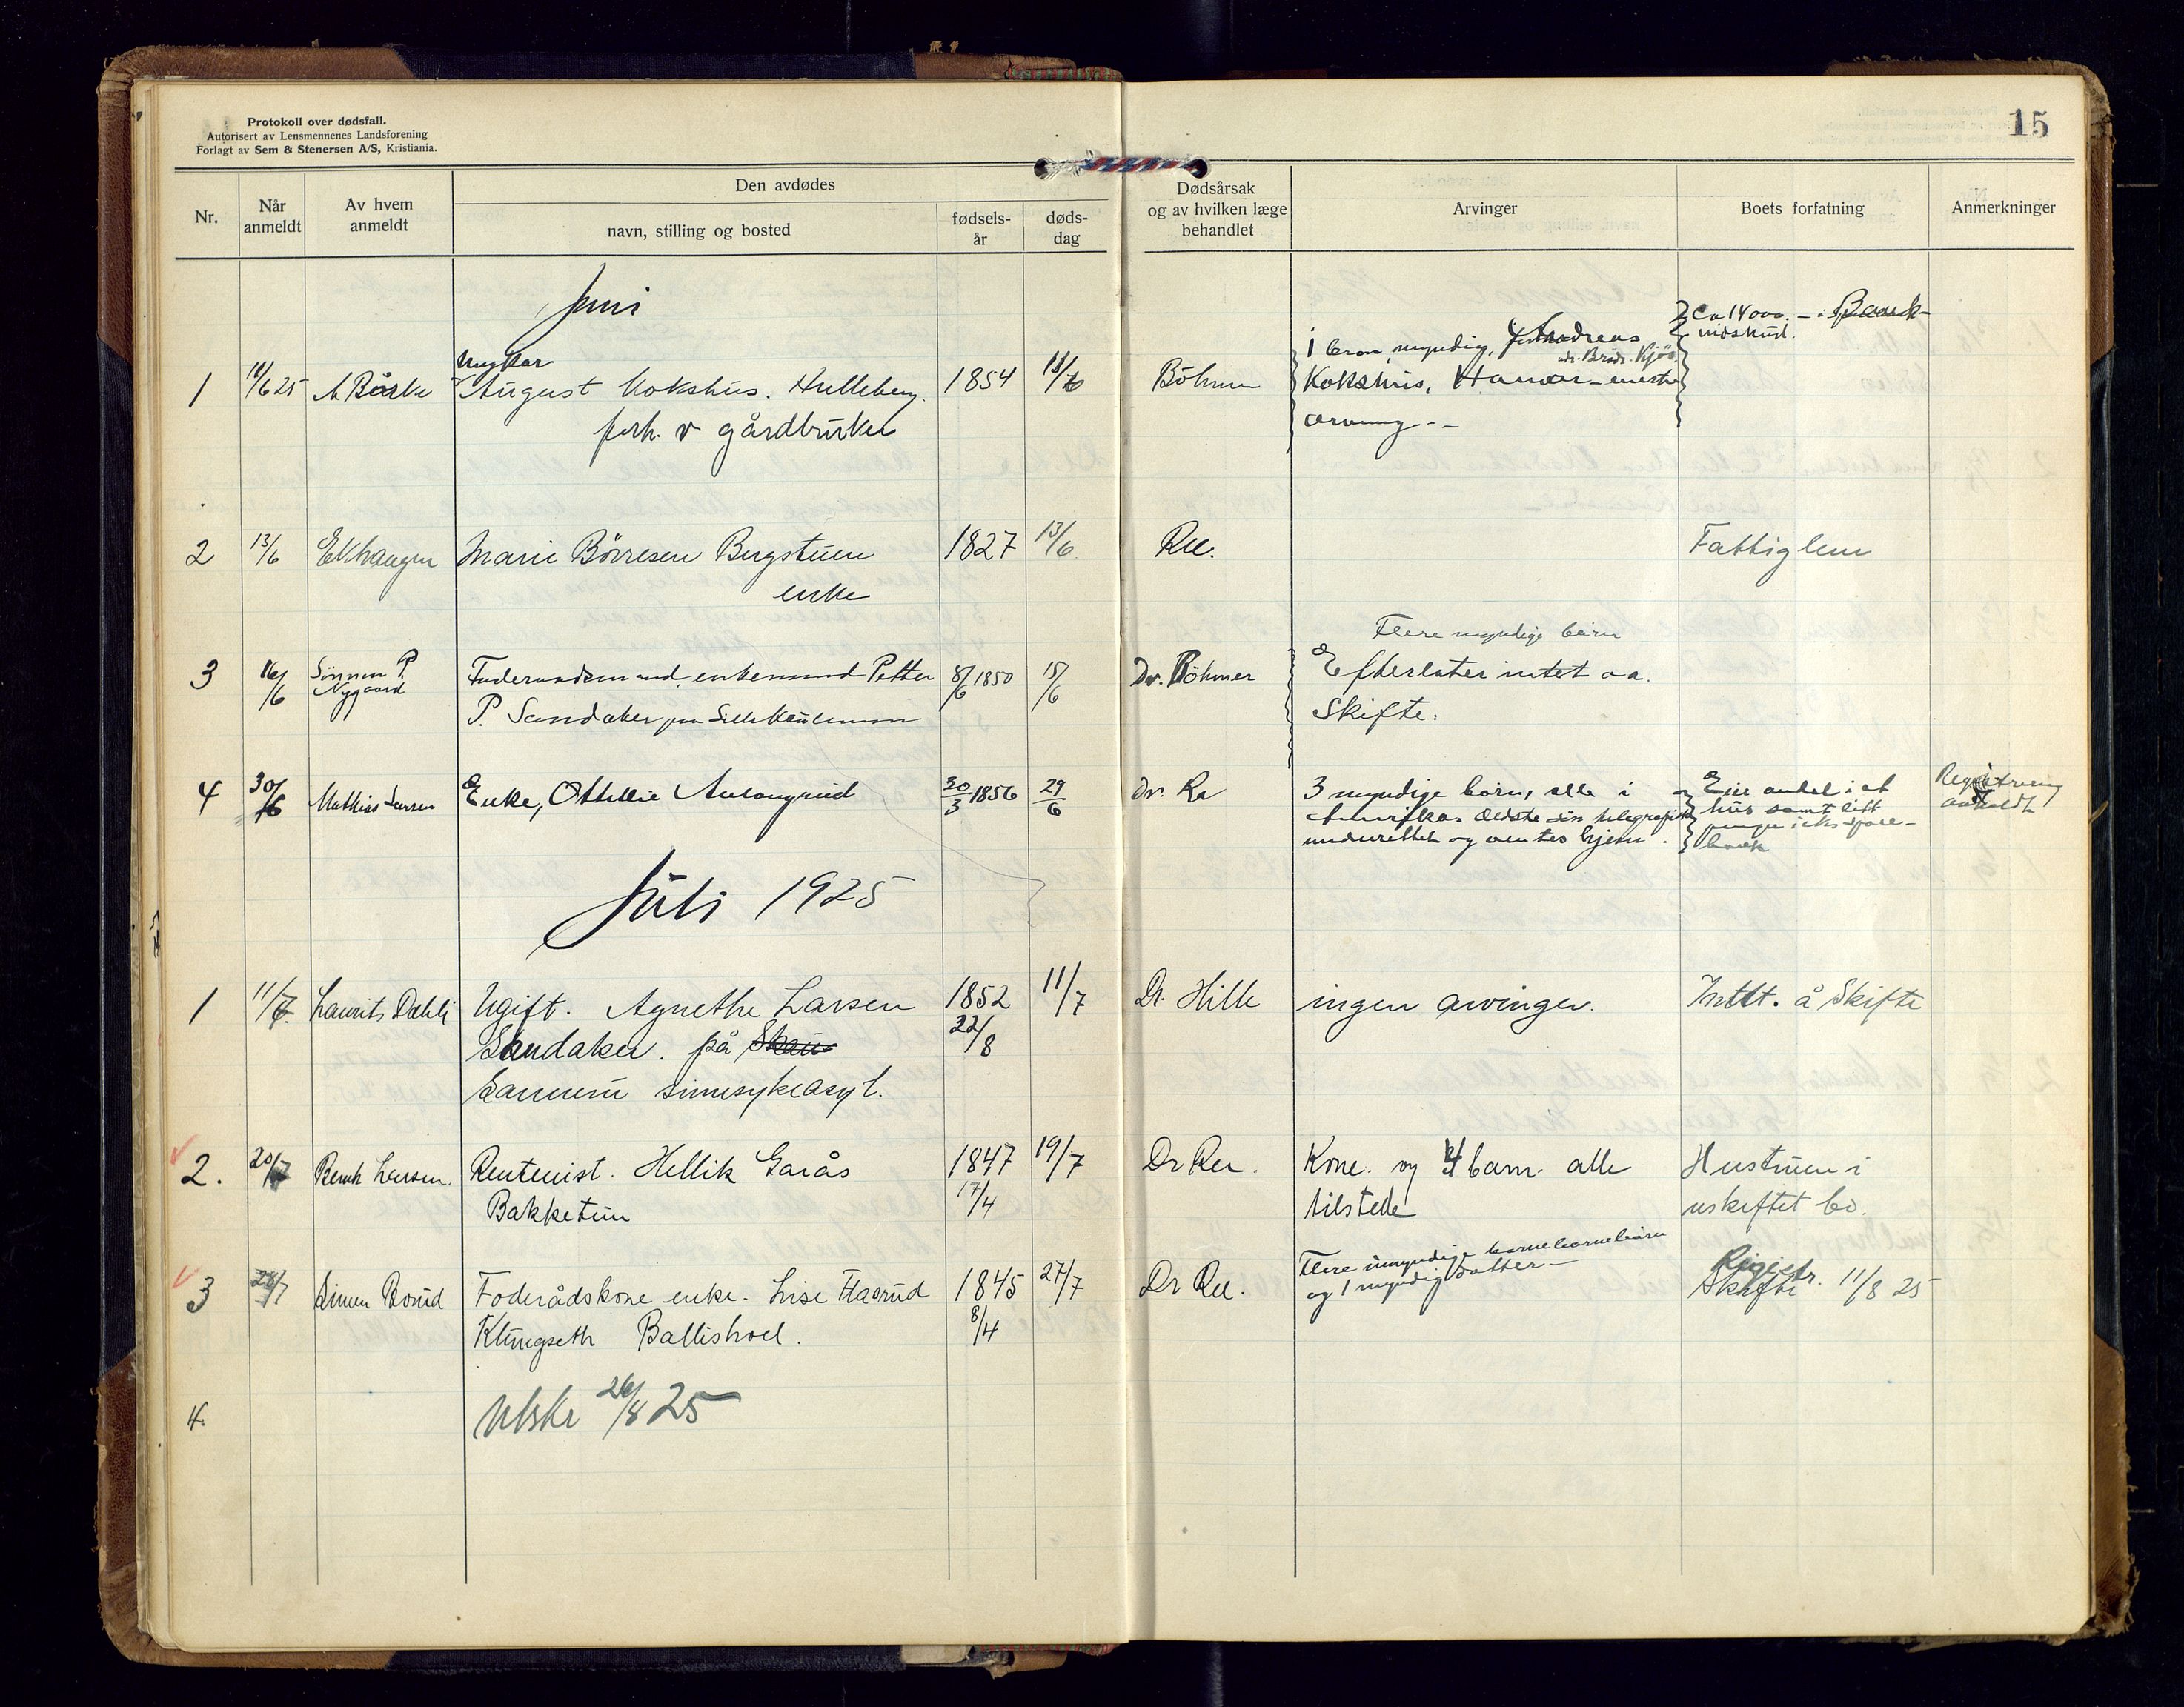 Protokoll over dødsfall.
Autorisert av Lensmennenes Landsforening
Forlagt av Sem & Stenersen A/S, Kristiania.
15
Nr.
Når anmeldt
Av hvem anmeldt
Den avdødes
navn, stilling og bosted
fødsels-år
døds-dag
Dødsårsak og av hvilken læge behandlet
Arvinger
Boets forfatning
Anmerkninger
Juni
1
Ungkar
August Kokshus. Hulleberg.
forh. v gårdbruker
1854
Böhmer
1 bror, myndig, Andreas
Kokshus, Hamar - eneste
arving --
Ca 14000. - i Bank-
indskud.
2 13/6 Ekhaugen Marie Börresen Bergstuen 1827 13/6 Ree. Fattiglem
enke
Flere myndige børn
3 16/6 Sönnen P. Nygaard
enkemand Petter 8/6 1850 15/6 Dr. Böhmer Efterlater intet aa
P. Sandaker
Skifte.
4 30/6 Mathias Larsen Enke, Othillie 30/3 1856 29/6 3 myndige børn, alle i
Amerika. Ældste søn telegrafisk
underrettet og ventes hjem.
Eier andel i et
hus samt litt
penge i
bank
Registrering
anholdt
Juli 1925
1 11/7 Laurits Dahli Ugift. Agnethe Larsen 1852 11/7 Dr. Hille ingen arvinger. Intet å Skifte
Sandaker. på 22/8
sinnesykeasyl.
2. 20/7 Bernh Larsen. Rentenist. Hellik Garås 1847 19/7 Dr Ree. Kone og 4 barn. alle Hustruen i
Bakketun 17/4 tilstede uskiftet bo.
3 28/7 Simen Foderådskone enke. Lise Haarud 1845 27/7 Dr Ree. Flere umyndige barnebarnebørn
og 1 myndig datter -
Registr.
Skifte 11/8 25
Klungseth Ballishoel. 8/4
4. Utskr 26/8 25